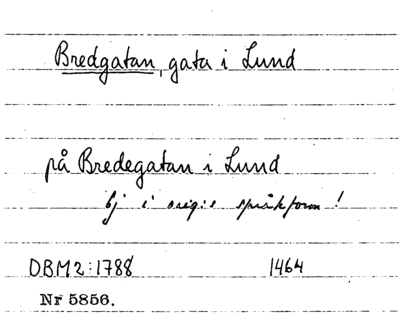 Bredgatan, gata i Lund
på Bredegatan i Lund
Ej i orig:s språkform!
DBM2:1788 1464
Nr 5856.